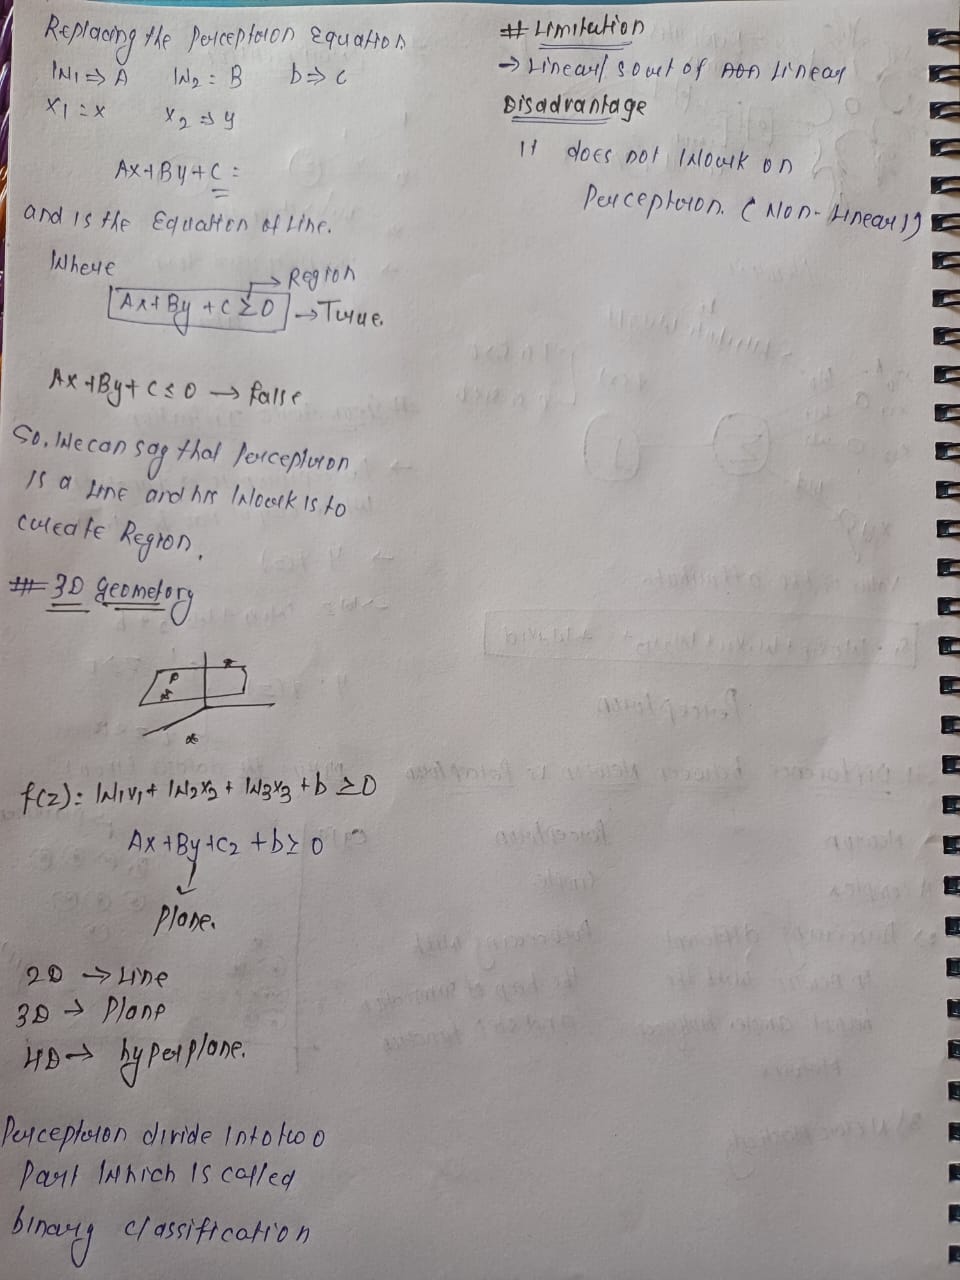 Replacing the Perceptron Equation
W1 => A W2 = B b => C
x1 = x x2 => y
Ax+By+C =
and is the Equation of Line.
Where
→ Region
Ax+By+C ≥ 0 → True.
Ax+By+C ≤ 0 → False
So, We can say that Perceptron
is a Line and his Work is to
create Region.
# 3D geometory
P
f(z) = W1x1 + W2x2 + W3x3 + b ≥ 0
Ax+By+Cz + b ≥ 0
Plane.
2D → Line
3D → Plane
4D → hyperplane.
Perceptron divide Into two
Part Which Is called
binary classification
# Limitation
→ Linear/ sort of non Linear
Disadvantage
It does not Work on
Perceptron. (Non-Linear)